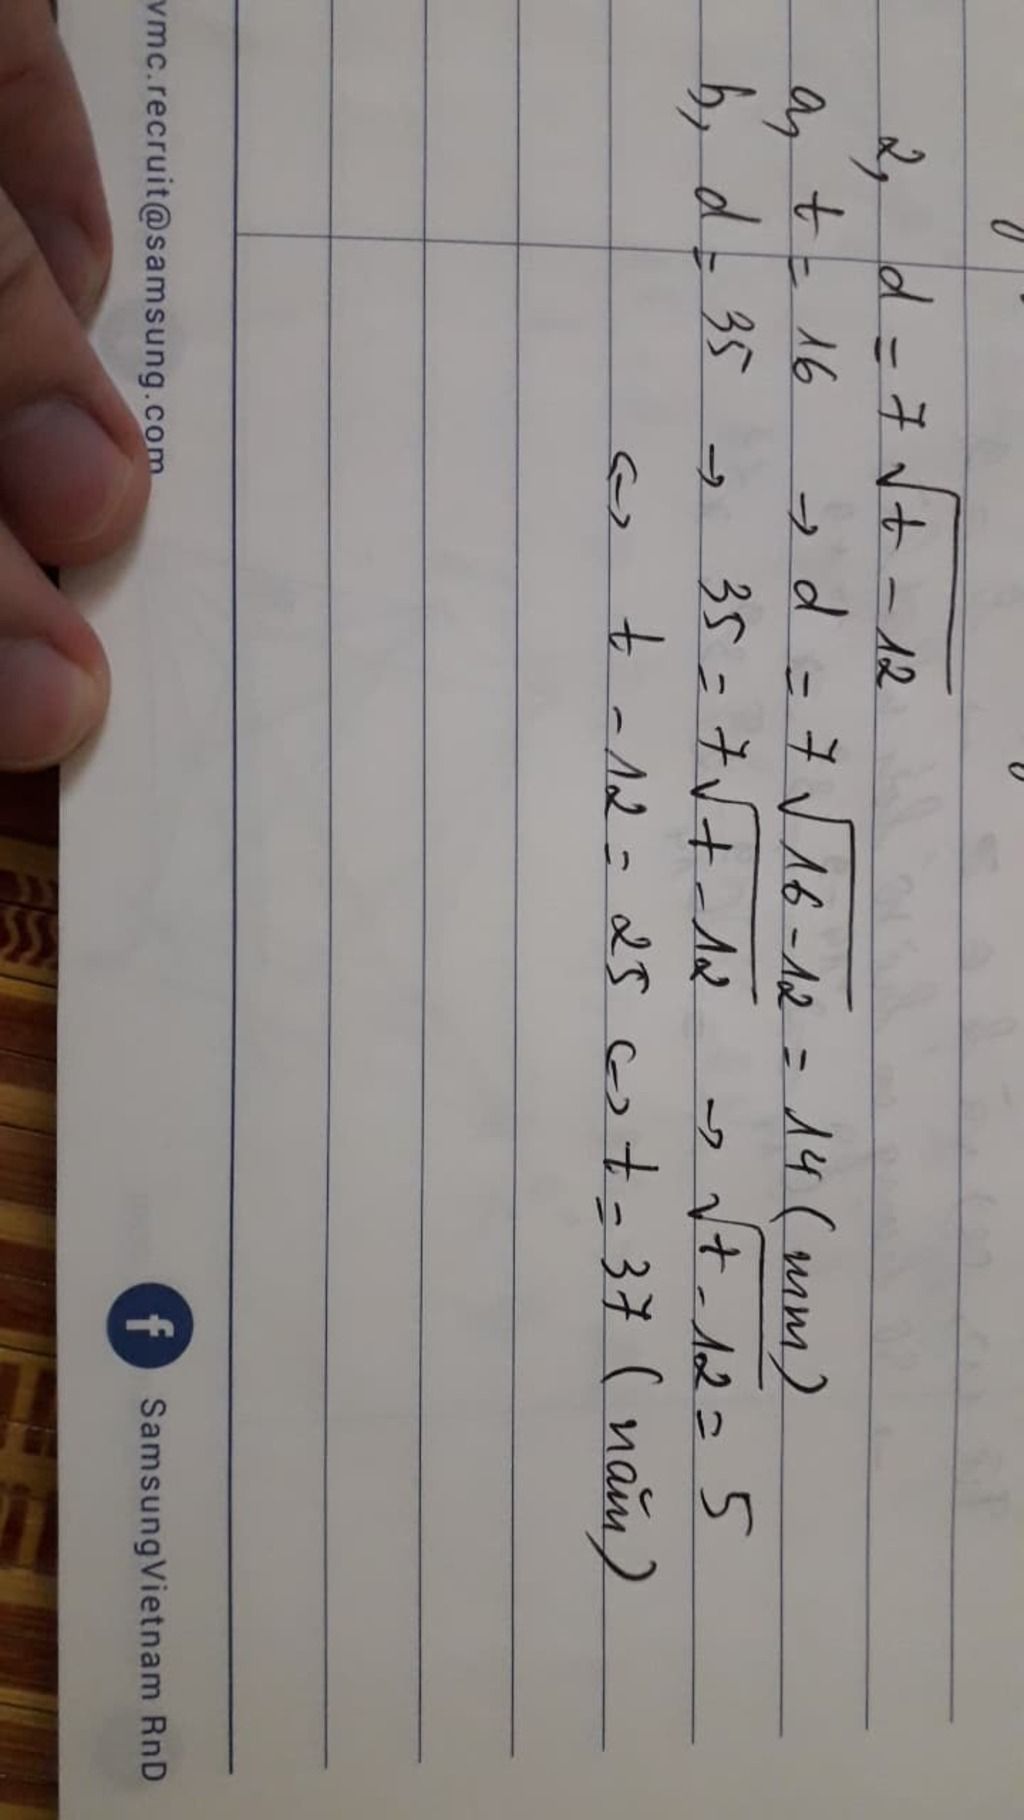 2, d = 7√(t - 12)
a, t = 16 → d = 7√(16 - 12) = 14 (mm)
b, d = 35 → 35 = 7√(t - 12) → √(t - 12) = 5
↔ t - 12 = 25 ↔ t = 37 (năm)
vmc.recruit@samsung.com
f SamsungVietnam RnD